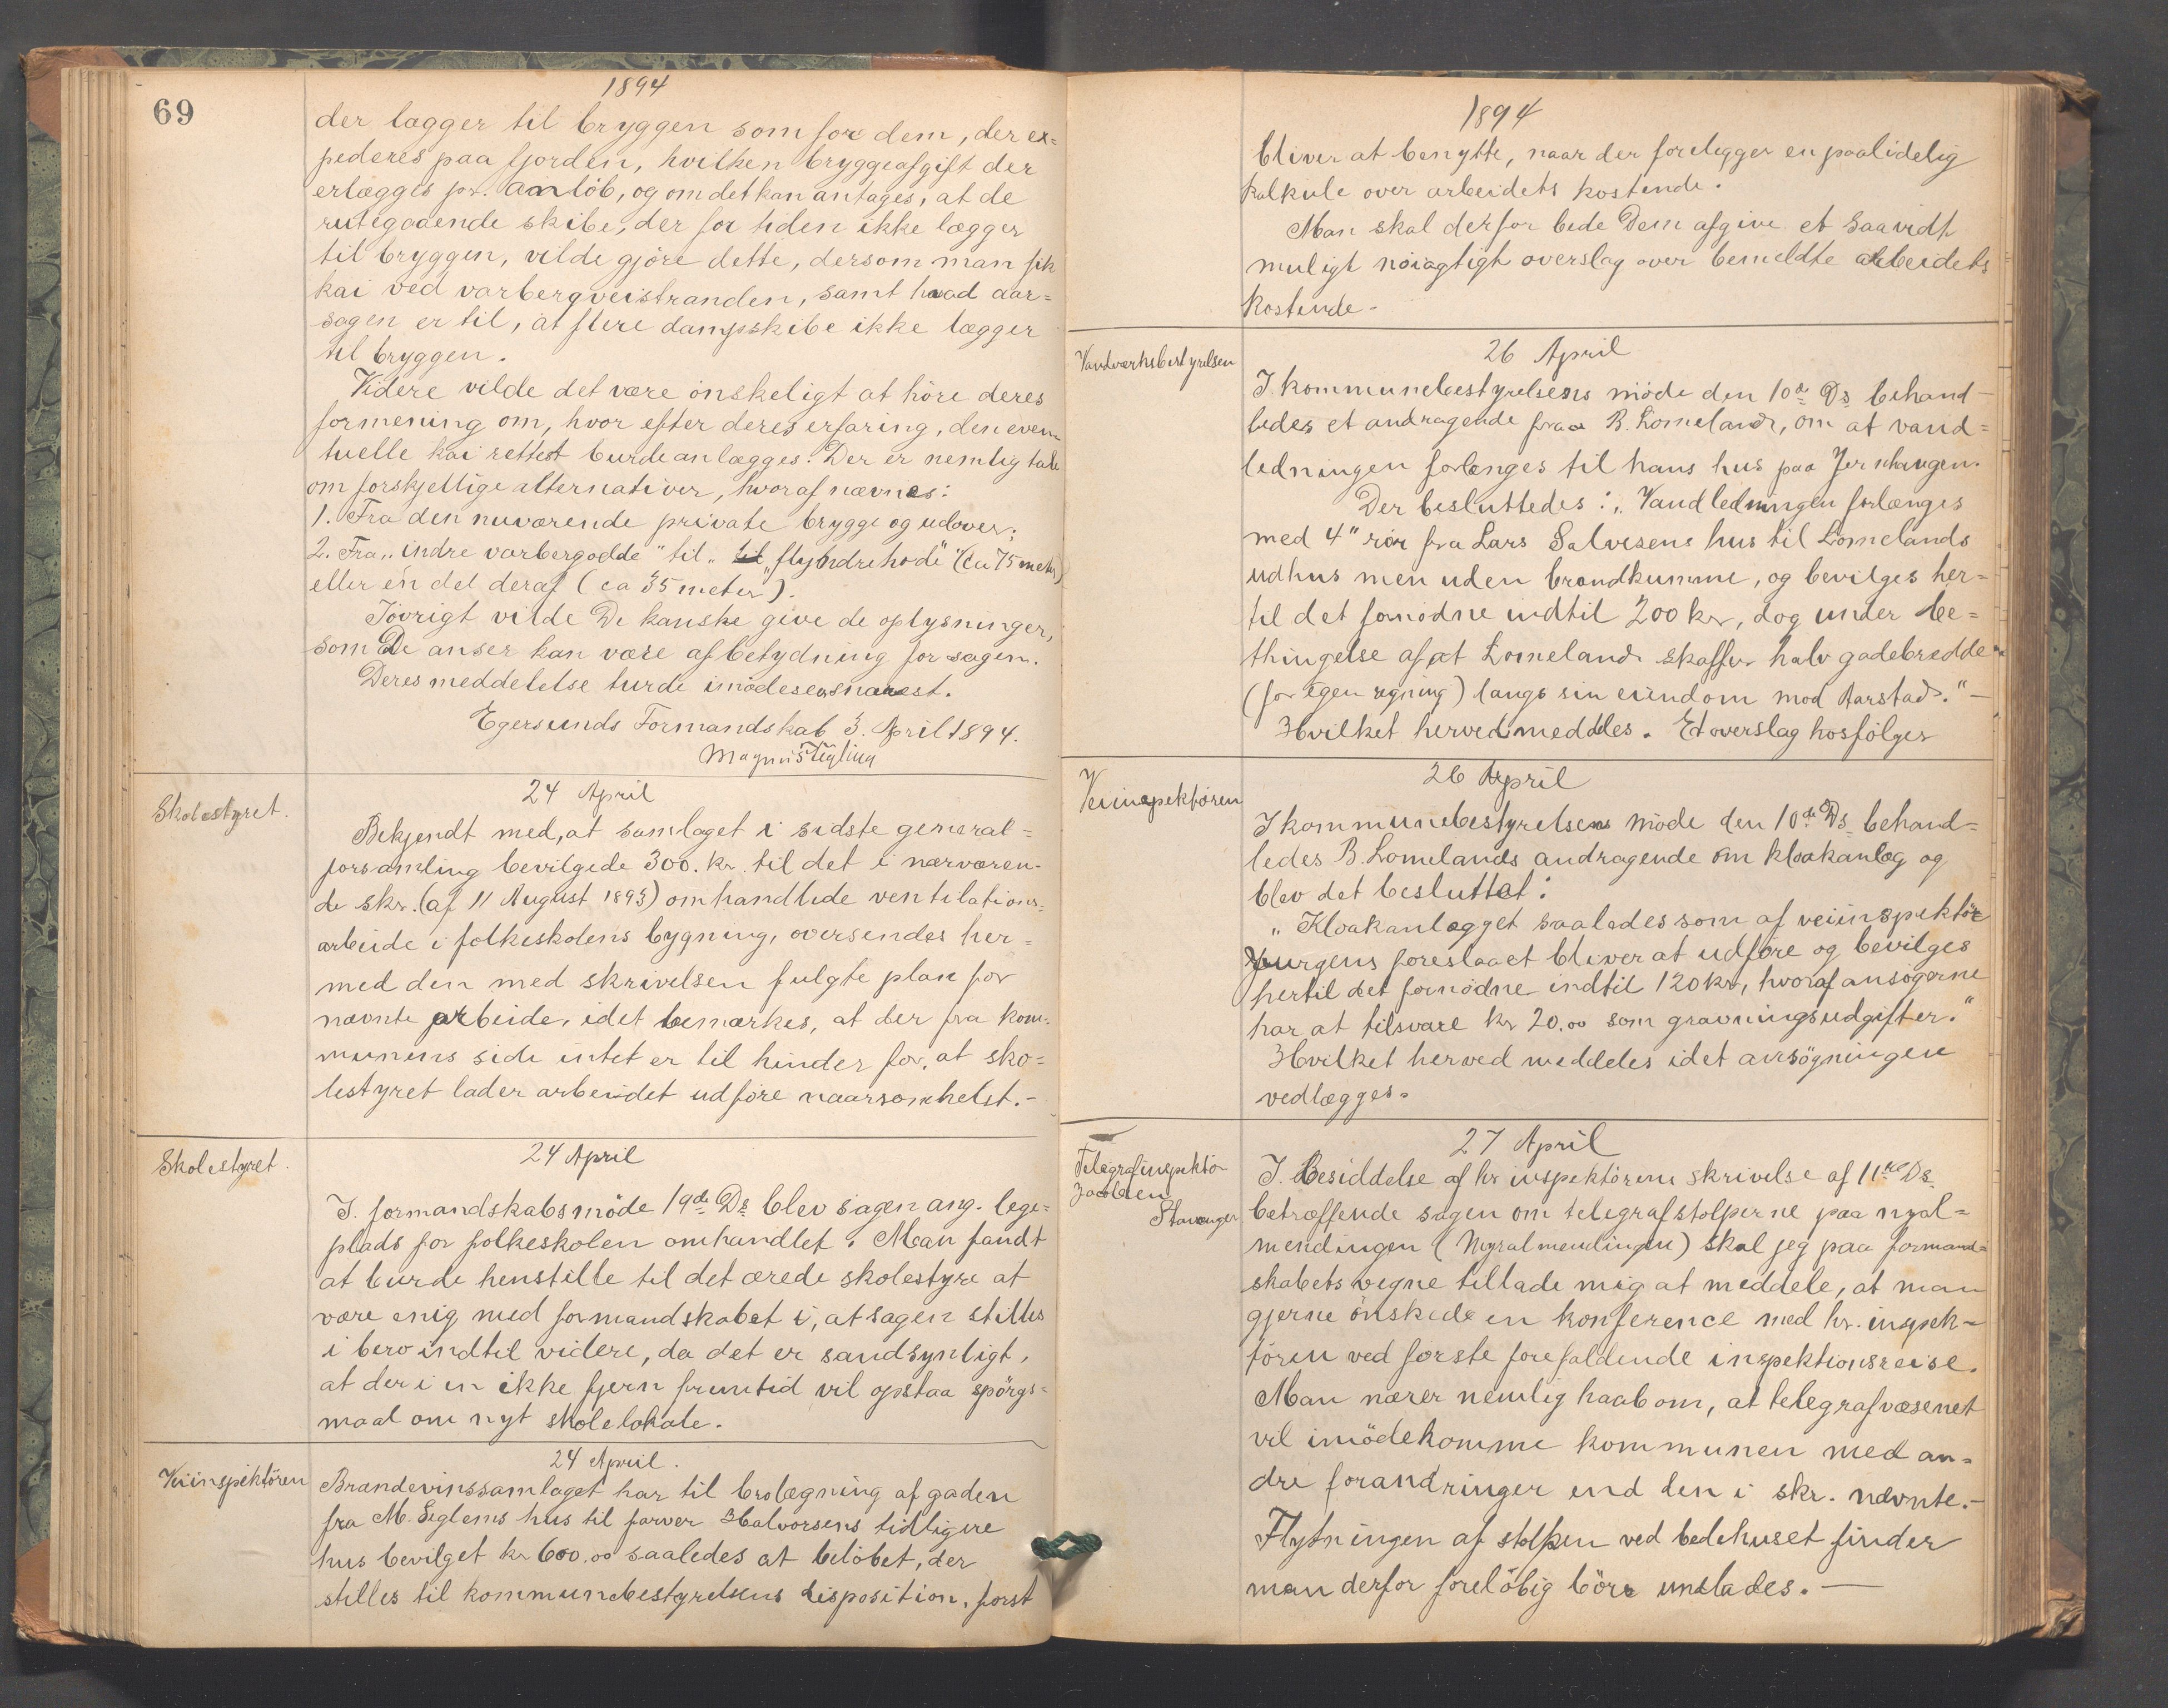 69
1894
der lægger til bryggen som for dem, der ex=
pederes paa fjorden, hvilken bryggeafgift der
erlægges pr. anløb, og om det kan antages, at de
rutegaaende skibe, der for tiden ikke lægger
til bryggen, vilde gjöre dette, dersom man fik
kai ved varbergveistranden, samt hvad aar=
sagen er til, at flere dampskibe ikke lægger
til bryggen.
Videre vilde det være önskeligt at höre deres
formening om, hvor efter deres erfaring, den even-
tuelle kai rettest burde anlægges. Der er nemlig tale
om forskjellige alternativer, hvoraf nævnes:
1. Fra den nuværende private brygge og udover;
2. Fra „indre varbergodde" til „flyndrehode" (ca 75 meter)
eller en del deraf (ca 35 meter).
Iövrigt vilde De kanske give de oplysninger,
som De anser kan være af betydning for sagen.
Deres meddelelse turde imödesees snarest.
Egersunds Formandskab 3. April 1894.
Magnus Tegling
Skolestyret.
24 April
Bekjendt med, at samlaget i sidste general=
forsamling bevilgede 300. kr. til det i nærværen-
de skr. (af 11 August 1893) omhandlede ventilations=
arbeide i folkeskolens bygning, oversendes her=
med den med skrivelsen fulgte plan for
nævnte arbeide, idet bemærkes, at der fra kom-
munens side intet er til hinder for, at sko=
lestyret lader arbeidet udföre naarsomhelst.-
Skolestyret.
24 April
I. formandskabsmöde 19de Ds blev sagen ang. lege=
plads for folkeskolen omhandlet. Man fandt
at burde henstille til det ærede skolestyre at
være enig med formandskabet i, at sagen stilles
i bero indtil videre, da det er sandsynligt,
at der i en ikke fjern fremtid vil opstaa spörgs=
maal om nyt skolelokale.
Veiinspektören
24 April.
Brændevinssamlaget har til brolægning af gaden
fra M. Seglems hus til farver Halvorsens tidligere
hus bevilget kr 600.00 saaledes at belöbet, der
stilles til kommunebestyrelsens disposition, først
1894
bliver at benytte, naar der foreligger en paalidelig
kalkule over arbeidets kostende.
Man skal derfor bede Dem afgive et saavidt
muligt nöiagtigt overslag over bemeldte arbeidets
kostende-
Vandværksbestyrelsen
26 April
I kommunebestyrelsens möde den 10de Ds behand-
ledes et andragende fra B. Lomeland, om at vand=
ledningen forlænges til hans hus paa Jernhaugen.
Der besluttedes: „Vandledningen forlænges
med 4" rör fra Lars Salvesens hus til Lomelands
udhus men uden brandkumme, og bevilges her=
til det fornödne indtil 200 kr, dog under be=
thingelse af at Lomeland skaffer halv gadebredde
(for egen regning) langs sin eiendom mod Aarstad."-
Hvilket herved meddeles. Et overslag hosfölger
Veiinspektören
26 April
I kommunebestyrelsens möde den 10de Ds behand=
ledes B. Lomelands andragende om kloakanlæg og
blev det besluttet:
„Kloakanlægget saaledes som af veiinspektör
Jurgens foreslaaet bliver at udføre og bevilges
hertil det fornödne indtil 120 kr, hvoraf ansögerne
har at tilsvare kr 20.00 som gravningsudgifter."
Hvilket herved meddeles idet ansögningen
vedlægges.
Telegrafinspektör
Jacobsen
Stavanger
27 April
I. Besiddelse af hr inspektörens skrivelse af 11te Ds.
betræffende sagen om telegrafstolperne paa nyal=
mendingen (Myralmendingen) skal jeg paa formand=
skabets vegne tillade mig at meddele, at man
gjerne önskede en konference med hr. inspek-
tören ved første forefaldende inspektionsreise.
Man nærer nemlig haab om, at telegrafvæsenet
vil imödekomme kommunen med an-
dre forandringer end den i skr. nævnte.-
Flytningen af stolpen ved bedehuset finder
man derfor foreløbig böre undlades.-